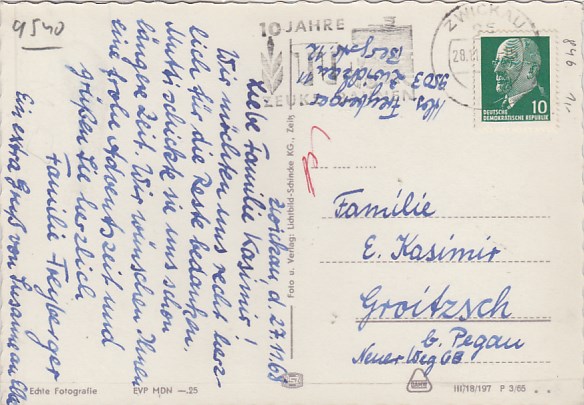 9540
10 JAHRE
ZWICKAU
28.
Abs. Freyberger
9503
846
DEUTSCHE
DEMOKRATISCHE REPUBLIK
10
Zwickau, d. 27.11.68
Liebe Familie Kasimir!
Wir möchten uns recht herz-
lich für die Reste bedanken.
Mutti schickte sie uns schon
längere Zeit. Wir wünschen Ihnen
eine frohe Adventszeit und
grüßen Sie herzlich
Familie Freyberger
Ein extra Gruß von Susanne an
Foto u. Verlag: Lichtbild-Schincke KG., Zeitz
Familie
E. Kasimir
Groitzsch
b. Pegau
Neuer Weg 6B
Echte Fotografie
EVP MDN —.25
III/18/197 P 3/65